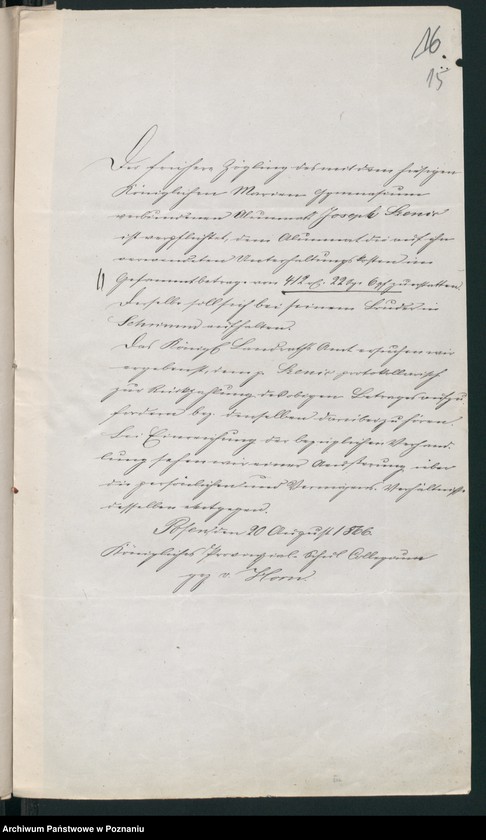 16.
15
Der frühere Zögling des mit dem hiesigen
Königlichen Marien Gymnasium
verbundenen Alumnats Joseph
ist verpflichtet, dem Alumnat die auf ihn
verwendeten Unterhaltungskosten im
Gesammtbetrage von 412 22 6 zu erstatten.
Derselbe soll sich bei seinem Bruder in
aufhalten.
Das Königl. Landraths Amt ersuchen wir
ergebenst, den p. protokollarisch
zur Rückzahlung des obigen Betrages aufzu
fordern denselben darüber zu hören.
Bei Einreichung der bezüglichen Verhand
lung sehen wir einer Aeußerung über
die persönlichen und Vermögens Verhältnisse
desselben entgegen.
Posen, den 20 August 1866.
Königliches Provinzial Schul Collegium
gz v. Horn.
Archiwum Państwowe w Poznaniu